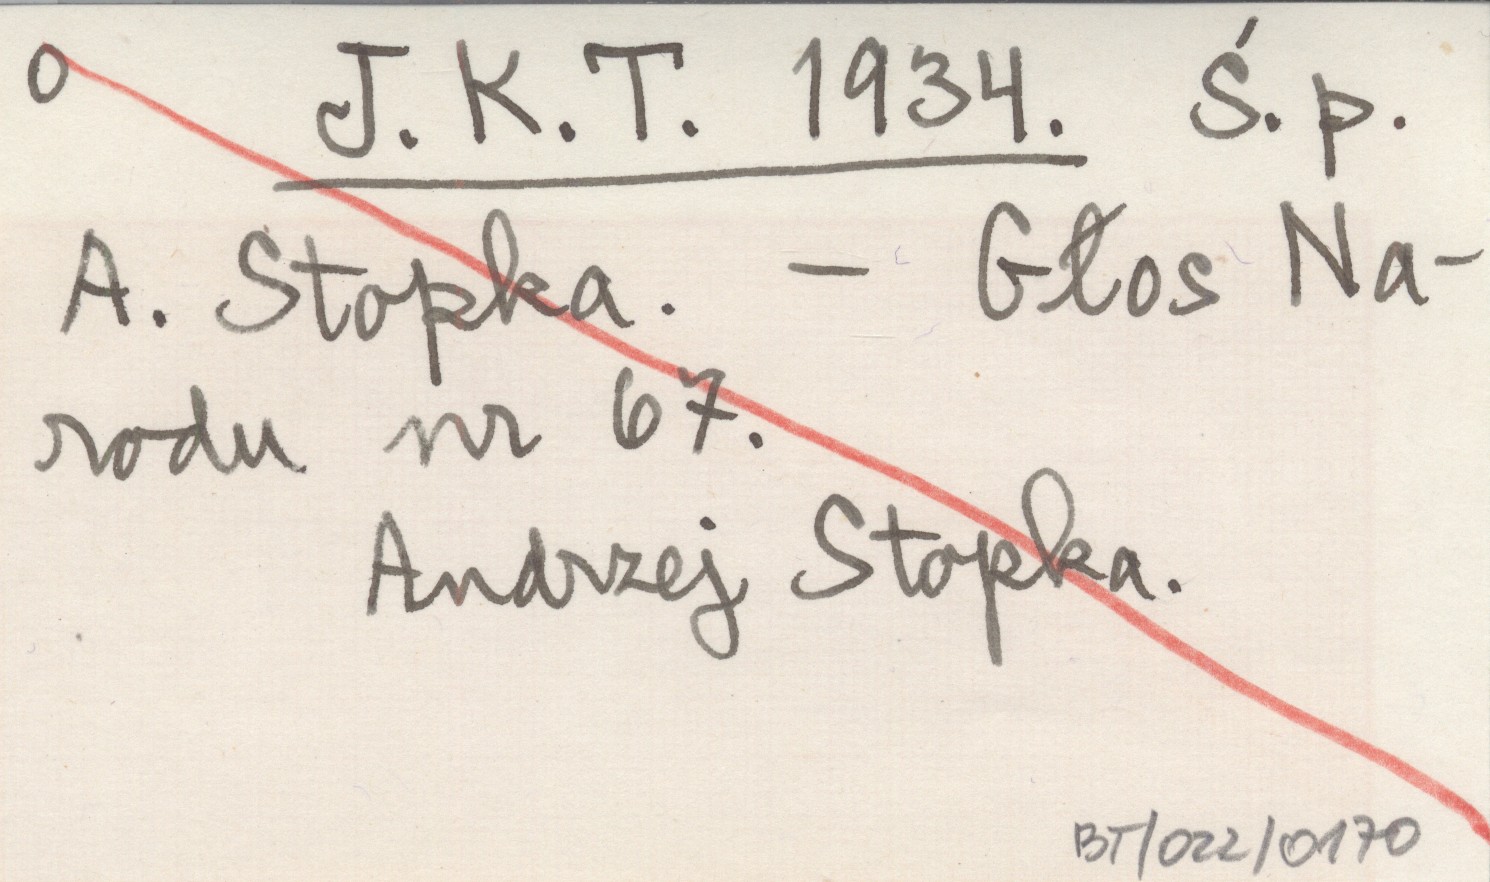 O J. K. T. 1934. Ś. p.
A. Stopka. — Głos Na-
rodu nr 67.
Andrzej Stopka.
BT/022/0170